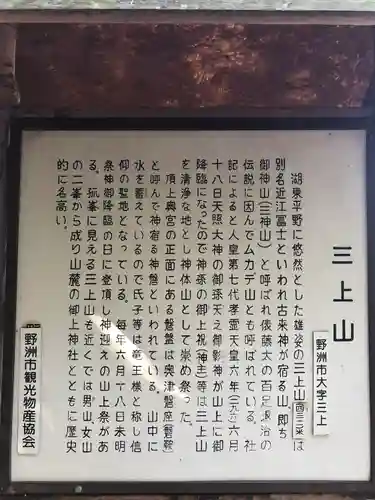 三上山
野洲市大字三上
湖東平野に悠然とした雄姿の三上山(四三二米)は
別名近江冨士といわれ古来神が宿る山、即ち
御神山(三神山)と呼ばれ俵藤太の百足退治の
伝説に因んでムカデ山とも呼ばれている。社
記によると人皇第七代孝霊天皇六年六月
十八日天照大神の御孫天之御影神が山上に御
降臨になったので神孫の御上祝(神主)等は三上山
を清浄な地とし神体山として崇め祭った。
頂上奥宮の正面にある磐盤は奥津磐座(磐鞍)
と呼んで神宿る神盤といわれている。山中に
水を蓄えているので氏子等は竜王様と称し信
仰の聖地となっている。毎年六月十八日未明
祭神御降臨の日に登頂し神迎えの山上祭があ
る。孤峯に見える三上山も近くでは男山、女山
の二峯から成り山麓の御上神社とともに歴史
的に名高い。
野洲市観光物産協会